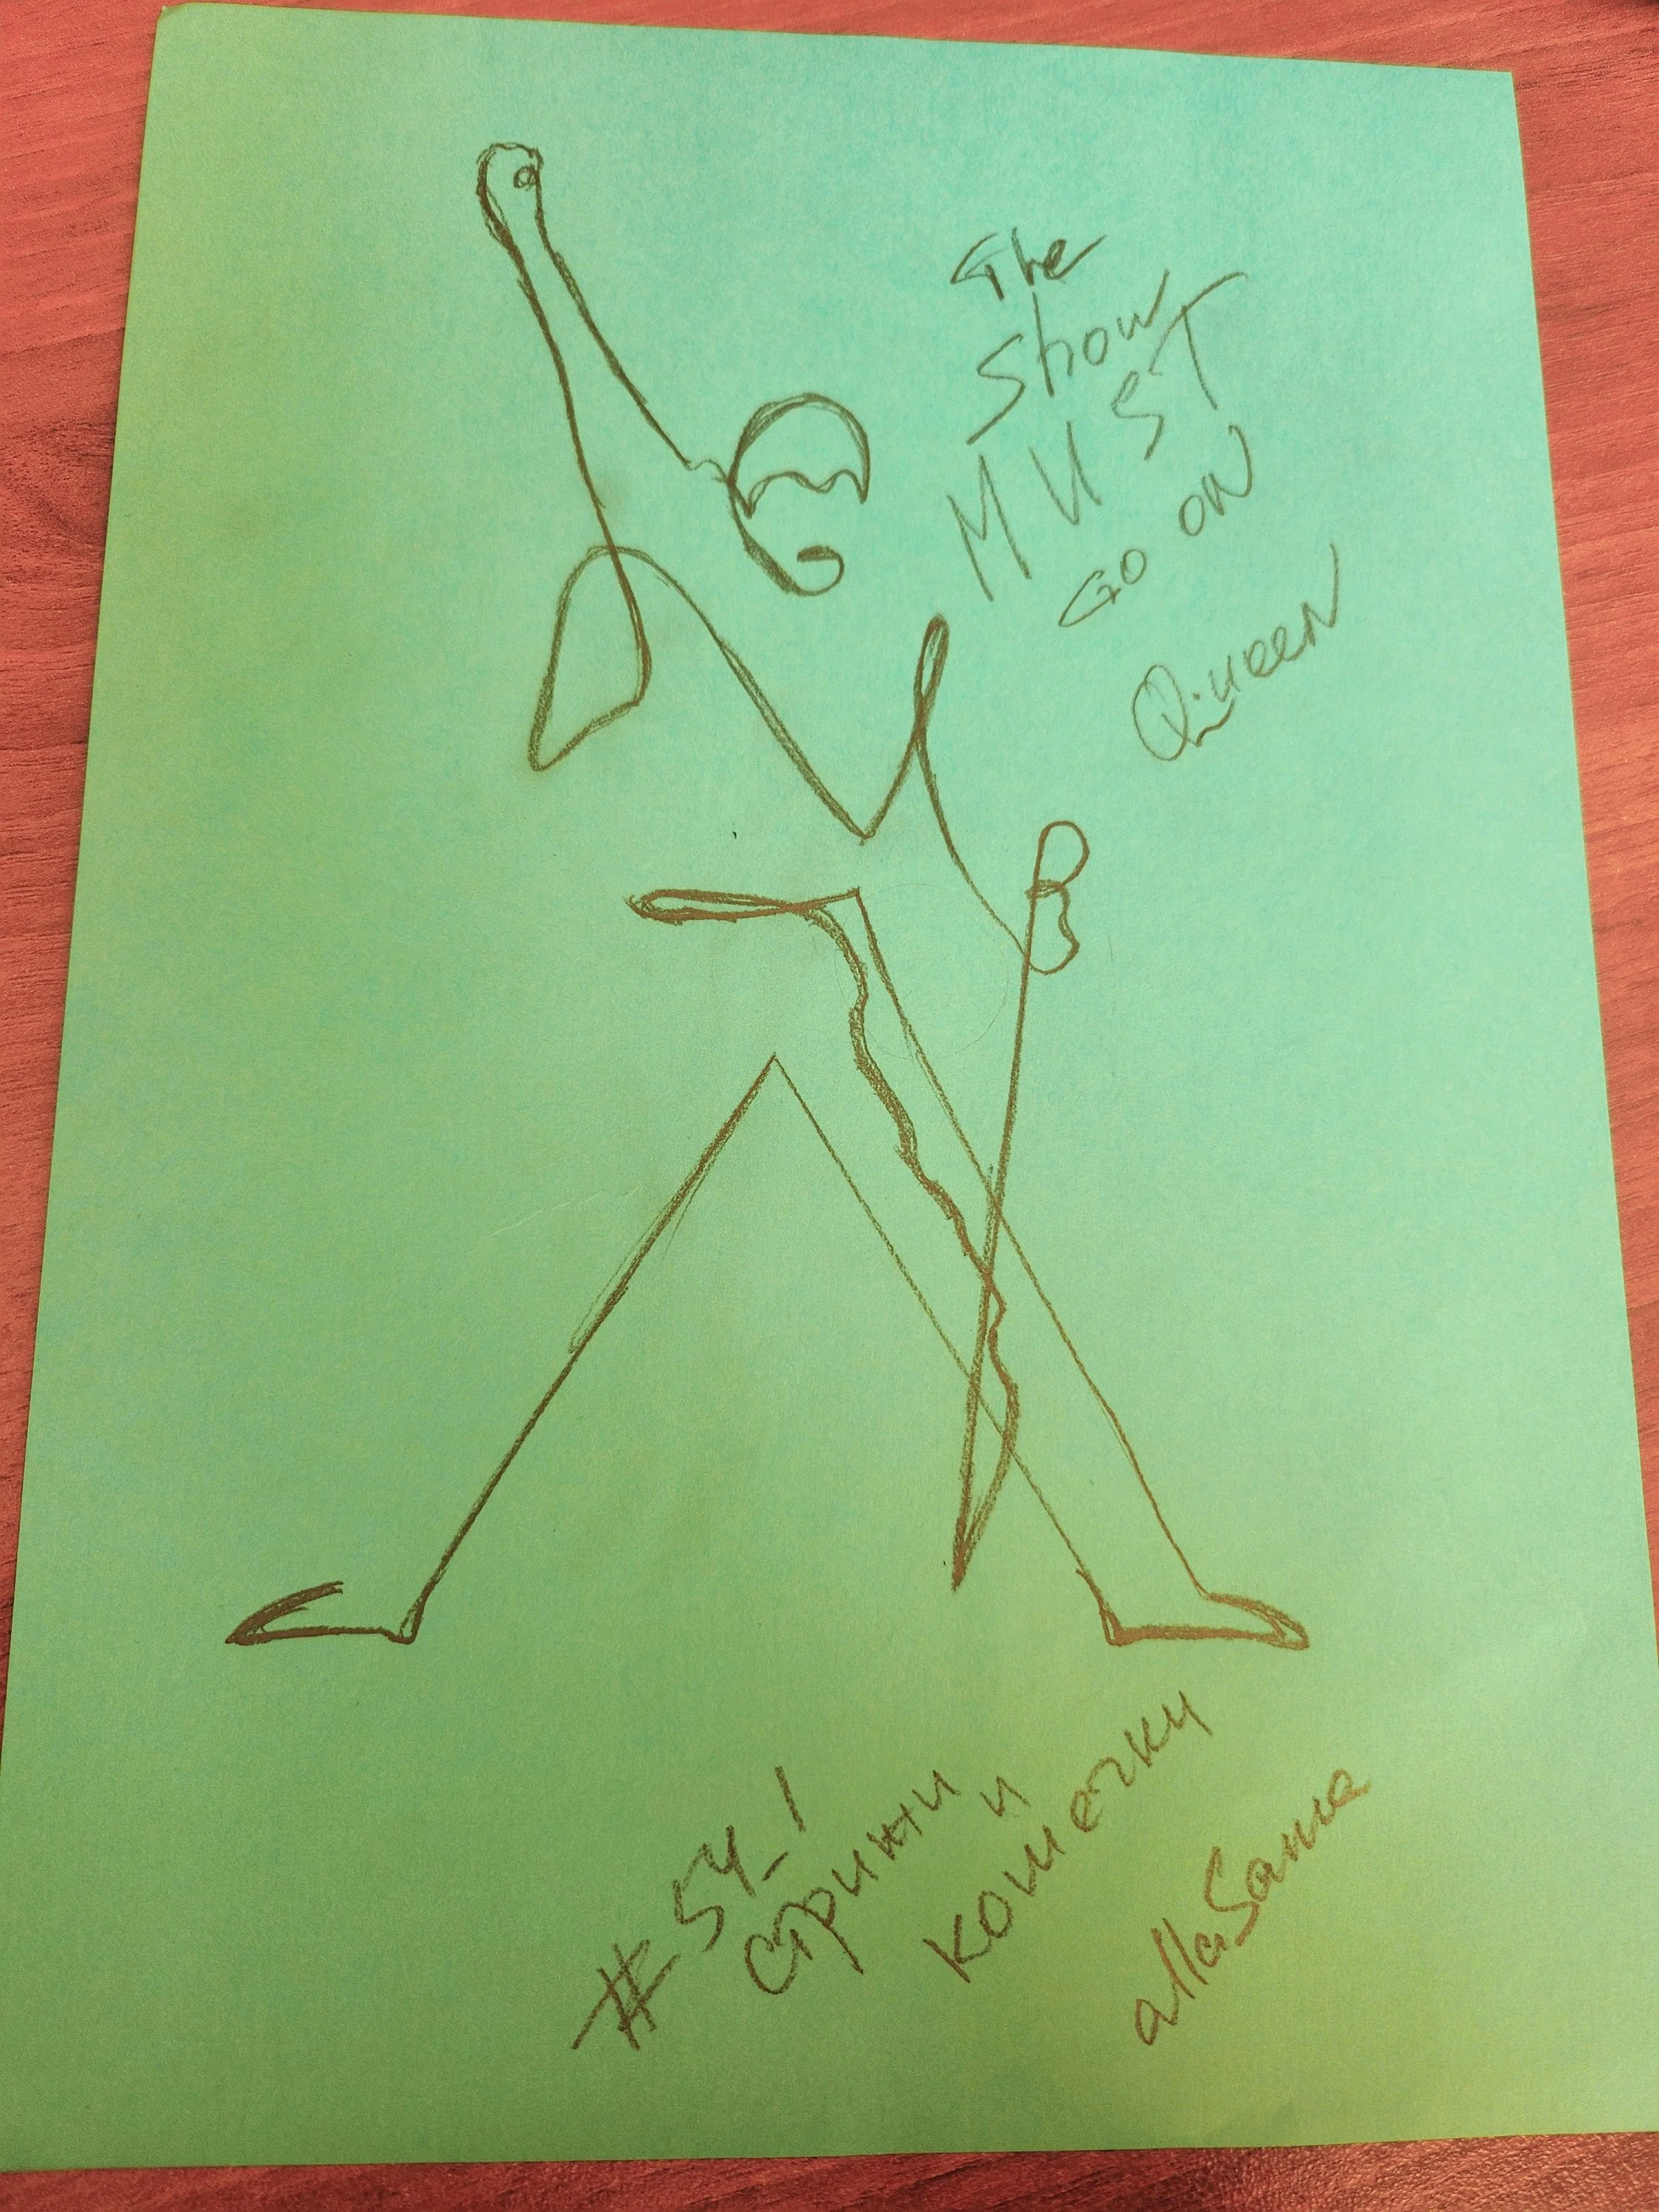 The
Show
MUST
GO ON
Queen
#54_1
стрижи и
кошечку
allaSanna